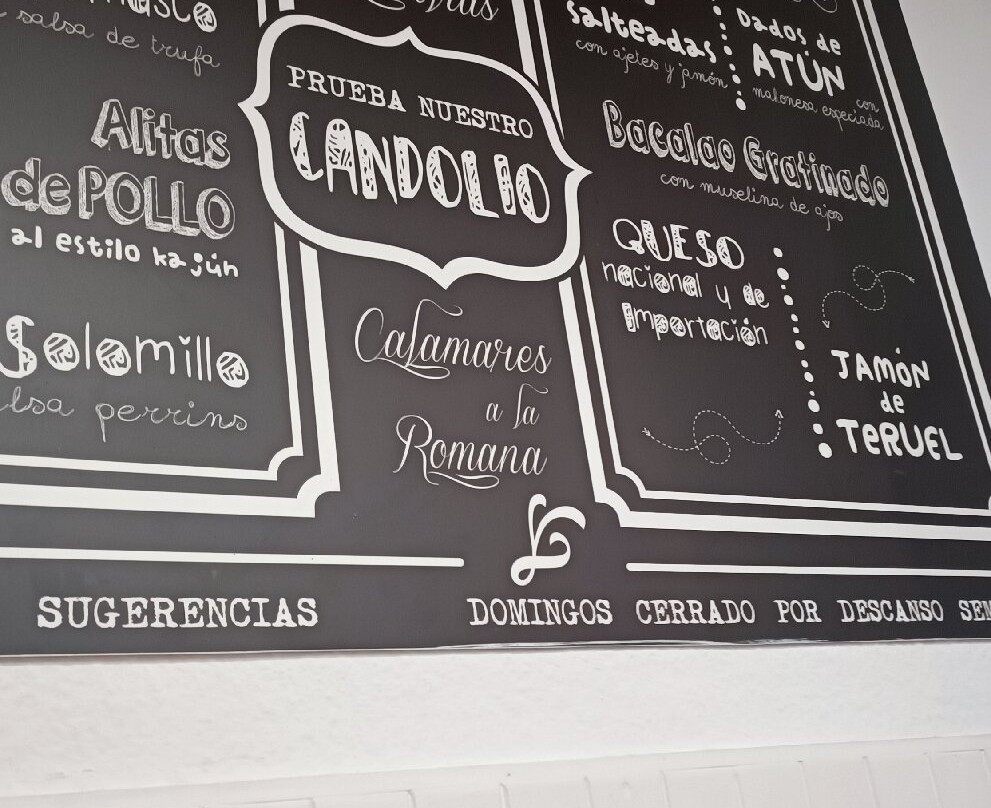 salsa de trufa
Alitas
de POLLO
al estilo kajún
Solomillo
perrins
PRUEBA NUESTRO
CANDOLIO
Calamares
a la
Romana
salteadas
con ajetes y jamón
Dados de
ATÚN
con
malonesa especiada
Bacalao Gratinado
con muselina de ajos
QUESO
nacional y de
importación
JAMÓN
de
TERUEL
SUGERENCIAS
DOMINGOS CERRADO POR DESCANSO